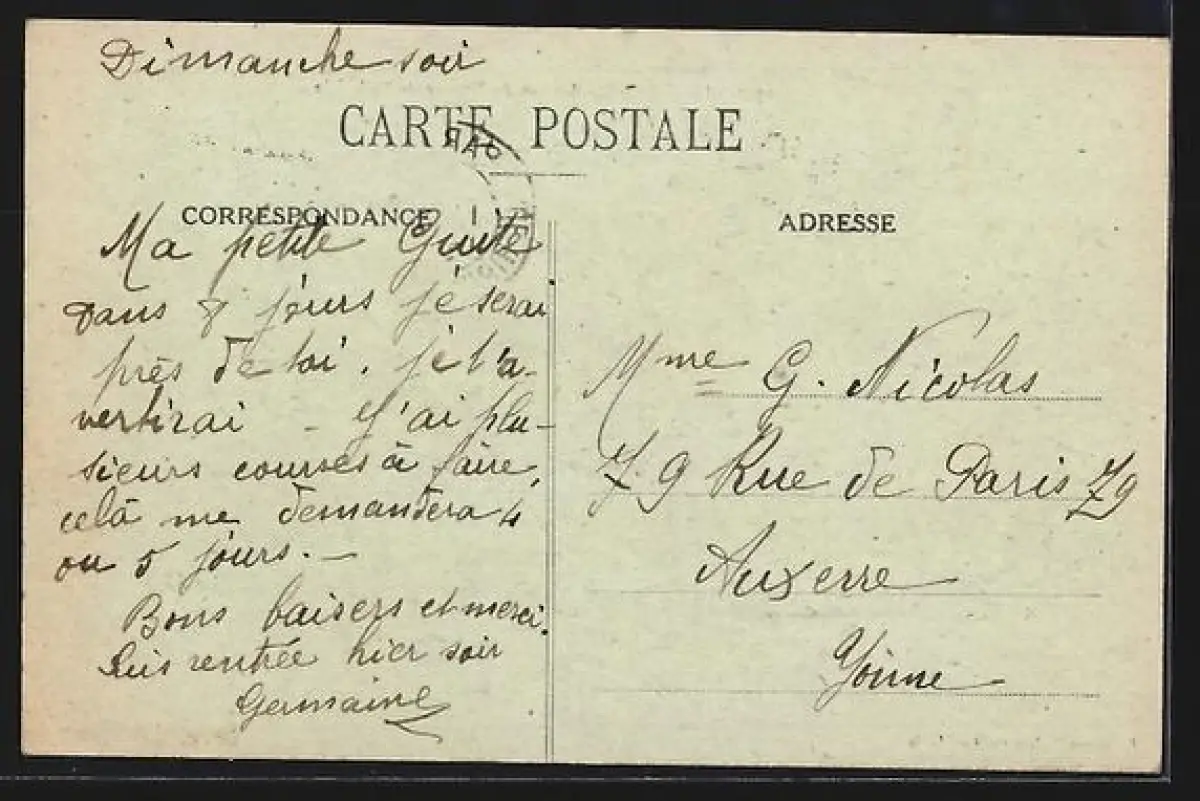 Dimanche soir
CARTE POSTALE
CORRESPONDANCE
Ma petite Guite
Dans 8 jours je serai
près de toi. je t'a-
vertirai - J'ai plu-
sieurs courses à faire,
celà me demandera 4
ou 5 jours. -
Bons baisers et merci.
Suis rentrée hier soir
Germaine
ADRESSE
Mme G. Nicolas
79 Rue de Paris 79
Auxerre
Yonne